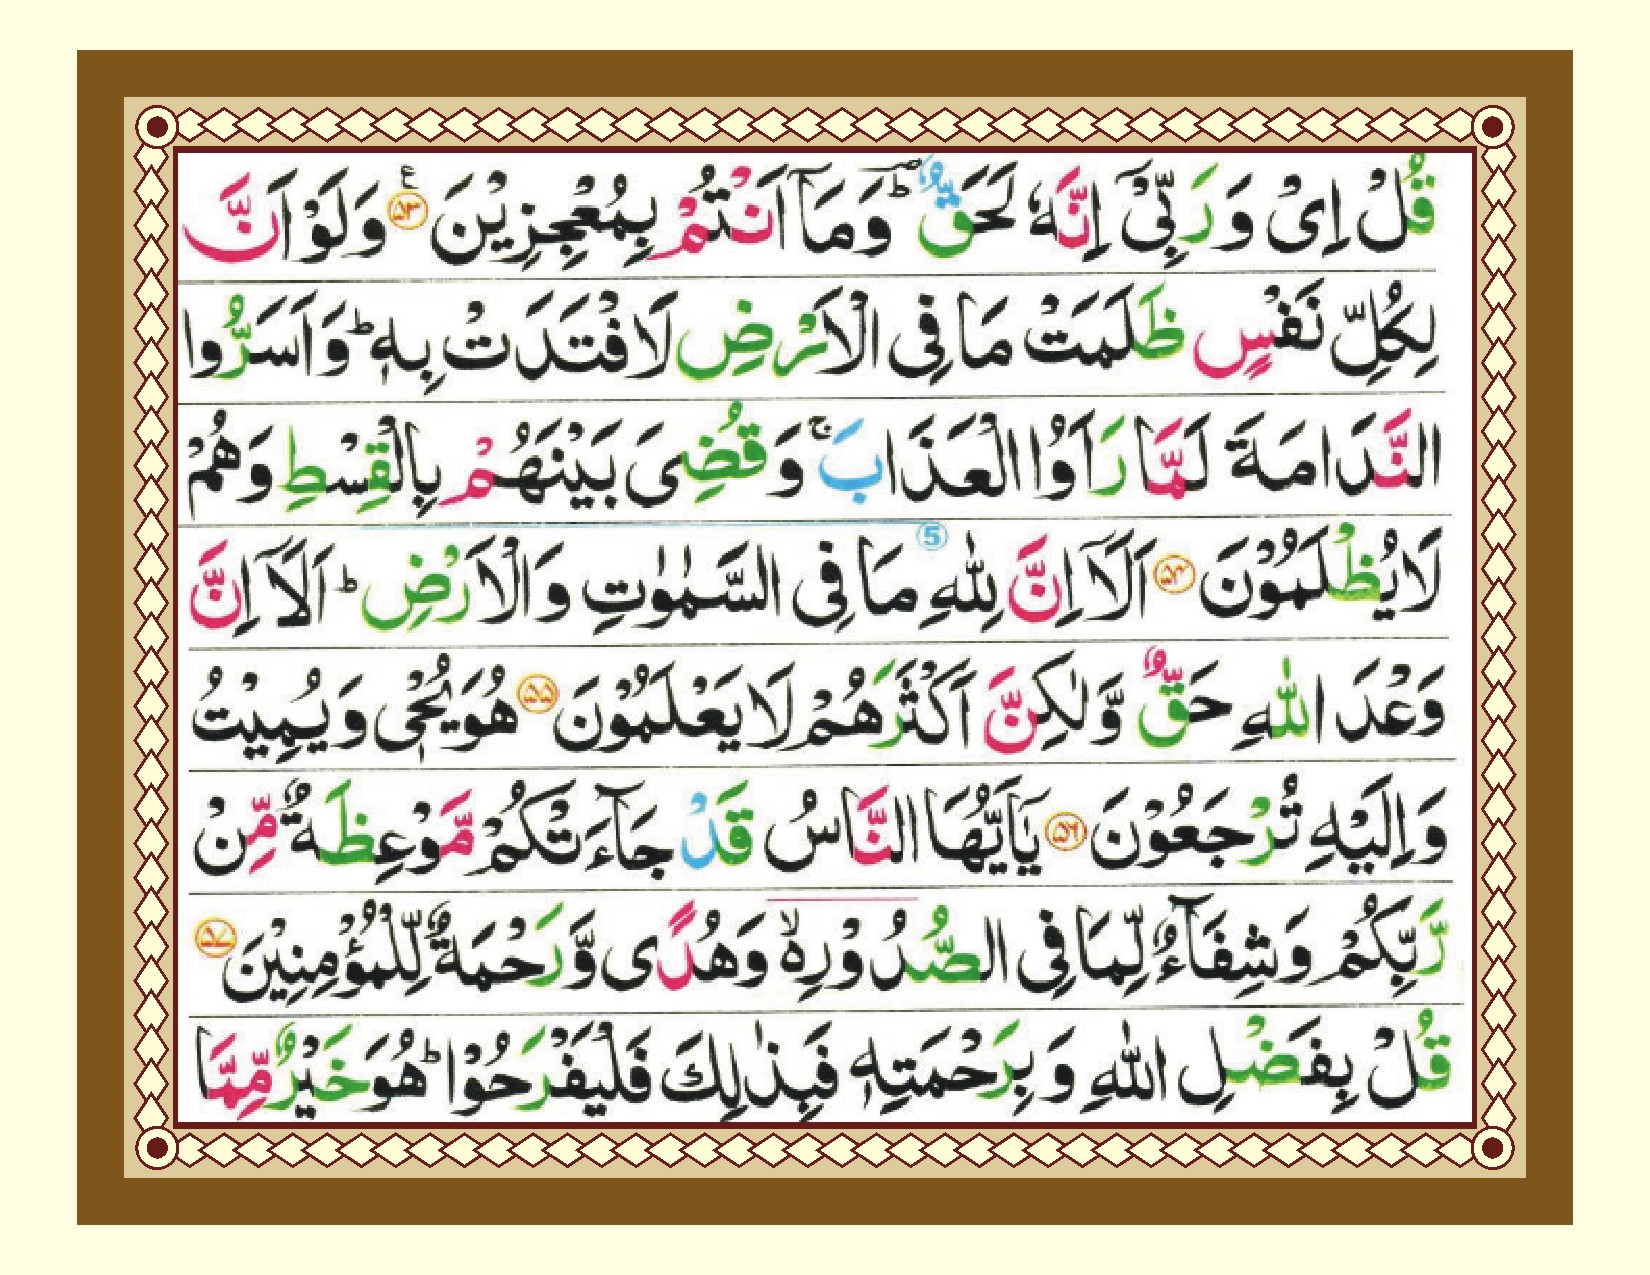 قُلْ اِیْ وَ رَبِّیْۤ اِنَّهٗ لَحَقٌّ ؔؕ وَ مَاۤ اَنْتُمْ بِمُعْجِزِیْنَ ۝۵۳ ع وَ لَوْ اَنَّ
لِكُلِّ نَفْسٍ ظَلَمَتْ مَا فِی الْاَرْضِ لَافْتَدَتْ بِهٖ ؕ وَ اَسَرُّوا
النَّدَامَةَ لَمَّا رَاَوُا الْعَذَابَ ۚ وَ قُضِیَ بَیْنَهُمْ بِالْقِسْطِ وَ هُمْ
لَا یُظْلَمُوْنَ ۝۵۴ اَلَاۤ اِنَّ لِلّٰهِ مَا 5 فِی السَّمٰوٰتِ وَ الْاَرْضِ ؕ اَلَاۤ اِنَّ
وَعْدَ اللّٰهِ حَقٌّ وَّ لٰكِنَّ اَكْثَرَهُمْ لَا یَعْلَمُوْنَ ۝۵۵ هُوَ یُحْیٖ وَ یُمِیْتُ
وَ اِلَیْهِ تُرْجَعُوْنَ ۝۵۶ یٰۤاَیُّهَا النَّاسُ قَدْ جَآءَتْكُمْ مَّوْعِظَةٌ مِّنْ
رَّبِّكُمْ وَ شِفَآءٌ لِّمَا فِی الصُّدُوْرِ ۙ۬ وَ هُدًی وَّ رَحْمَةٌ لِّلْمُؤْمِنِیْنَ ۝۵۷
قُلْ بِفَضْلِ اللّٰهِ وَ بِرَحْمَتِهٖ فَبِذٰلِكَ فَلْیَفْرَحُوْا ؕ هُوَ خَیْرٌ مِّمَّا